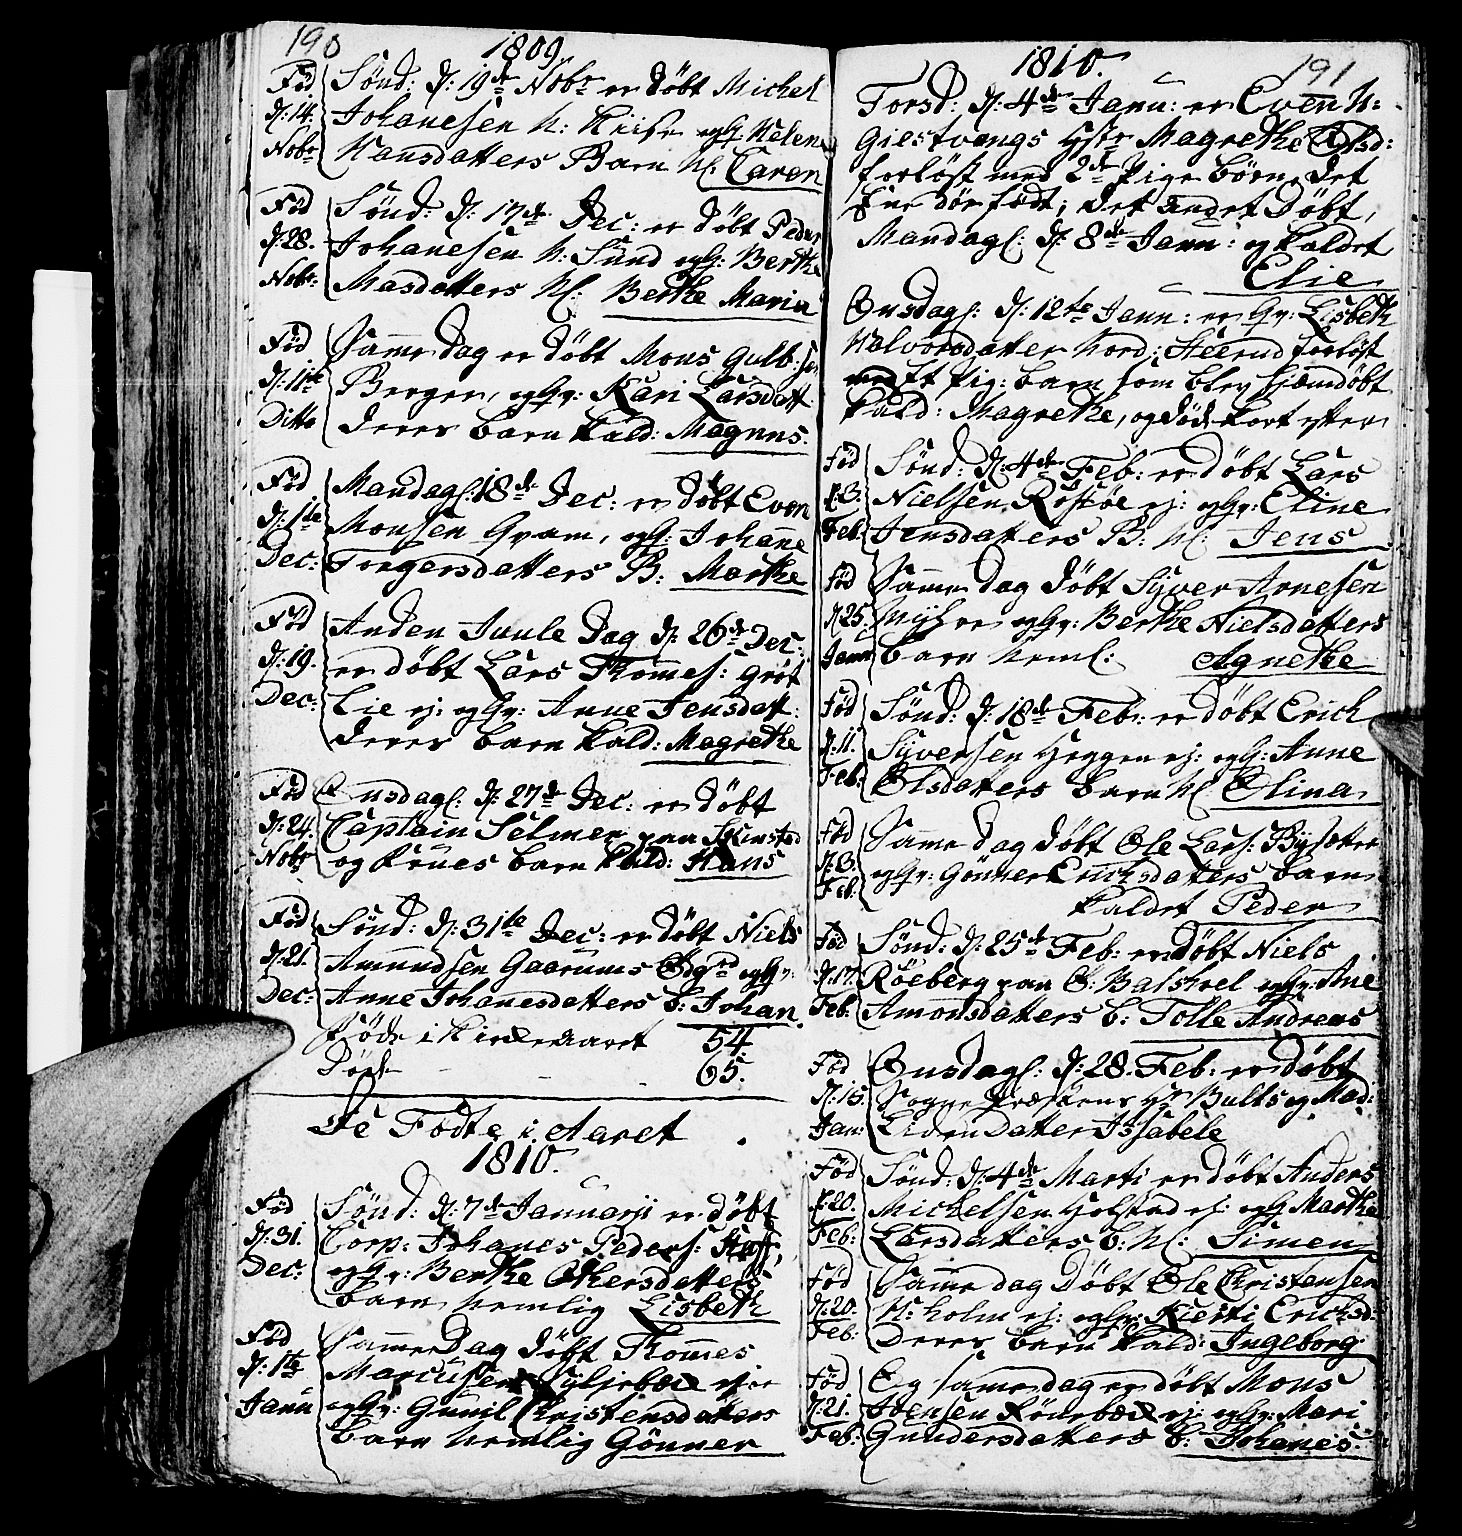 190
1809
Fød Sønd: d: 19de Nobr er døbt Michel
d: 14. Johanesen N: og Helene
Nobr Hansdatters Barn N: Caren
Fød Sønd: d: 17de Dec: er døbt Peder
d: 28. Johanesen N: Sund og Berthe
Nobr: Masdatters N: Berthe Maria
Fød Samme Dag er døbt Mons Gulb:
d: 11te Bergen, og Kari Larsdatt
Ditto deres barn kald: Magnus.
Fød Mandag: 18de Dec: er døbt Even
d: 1te Monsen Gram, og Johanne
Dec: Torgersdatters B: Marthe
Fød Anden Juule Dag d: 26de Dec:
d: 19. er døbt Lars Thomes: Grøt
Dec: Lie ej: og Anne Jensdatt:
deres barn kald: Magrethe
Fød Onsdag: d: 27de Dec: er døbt
d: 24. Captain Selmer paa
Nobr og Frues barn kald: Hans
Fød Sønd: d: 31te Dec: er døbt Niels
d: 21. Amundsen Gaarums og
Dec: Anne Johanesdatters b: Johan
Føde i Kirkeaaret 54.
Døde - - - 65.
De Fødte i Aaret
1810.
Fød Sønd: d: 7de Januarji er døbt
d: 31. Corp: Johanes Peders:
Dec: og Berthe Othersdatters
barn nemlig Lisbeth
Fød Samme Dag døbt Thommes
d: 1te Marcusen
Janu og Gunil Christensdatters
barn nemlig Gønner
1810.
191
Torsd: d: 4de Janu: er Even N:
Giestvangs Hstr Magrethe Olsd:
forløst med 2de Pige børn, det
Ene død født, det andet døbt,
Mandag: d: 8de Janu: og kaldet
Elie
Onsdag: d: 12te Janu: er Lisbeth
Halvorsdatter Nord: Steerud forløst
med Et Pig: barn som blev hjemdøbt
kald: Magrethe, og døde kort efter
Fød Sønd: d: 4de Feb: er døbt Lars
d: 3. Nielsen, ej: og Eline
Feb: Jensdatters B: N: Jens
Fød Samme dag døbt Syver Arnesen
d: 25. og Berthe Nielsdatters
Janu barn neml: Agnethe
Fød Sønd: d: 18de Feb: er døbt Erich
d: 11. Syversen Heggen ej: og Anne
Feb: Olsdatters barn N: Olina
Fød Samme dag døbt Ole Lars:
d: 3. og Gønner Erichsdatters barn
Feb. kaldet Peder
Fød Sønd: d: 25de Feb: er døbt Niels
d: 17. Røeberg paa og Ane
Feb. Amonsdatters b: Tolle Andreas
Fød Onsdag: d: 28. Feb: er døbt
d: 15. Sogne Præstens Hr Bults og Mad:
Jan: Liden Datter Issabele
Fød Sønd: d: 4de Marti er døbt Anders
d: 20. Michelsen Holstad ej: og Marthe
Feb: Larsdatters b: N: Simen
Fød Samme dag døbt Ole Christensen
d: 20. N: holm ej: og Kiersti Erichsd:
Feb: deres barn kald: Ingeborg
Fød Og same dag er døbt Mons
d: 21. Jensen ej: og Mari
Feb: Gundersdatters b: Johanes.